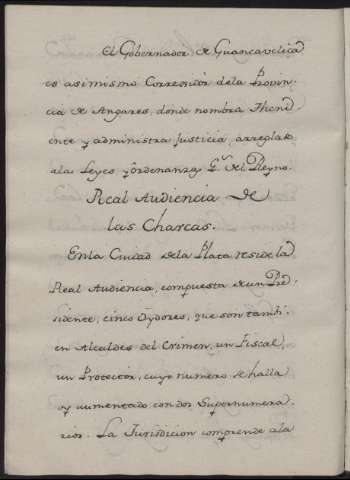 El Gobernador de Guancavelica
es asimismo Corregidor dela Provin-
cia de Angares, donde nombra Theni-
ente y administra Justicia, arreglado
alas Leyes y ordenanzas del Reyno.
Real Audiencia de
las Charcas.
Enla Ciudad dela Plata reside la
Real Audiencia, compuesta de un Pre-
sidente, cinco Oydores, que son tambi-
en Alcaldes del Crimen, un Fiscal,
un Protector, cuyo numero se halla
oy aumentado con dos Supernumera-
rios. La Jurisdicion comprende ala